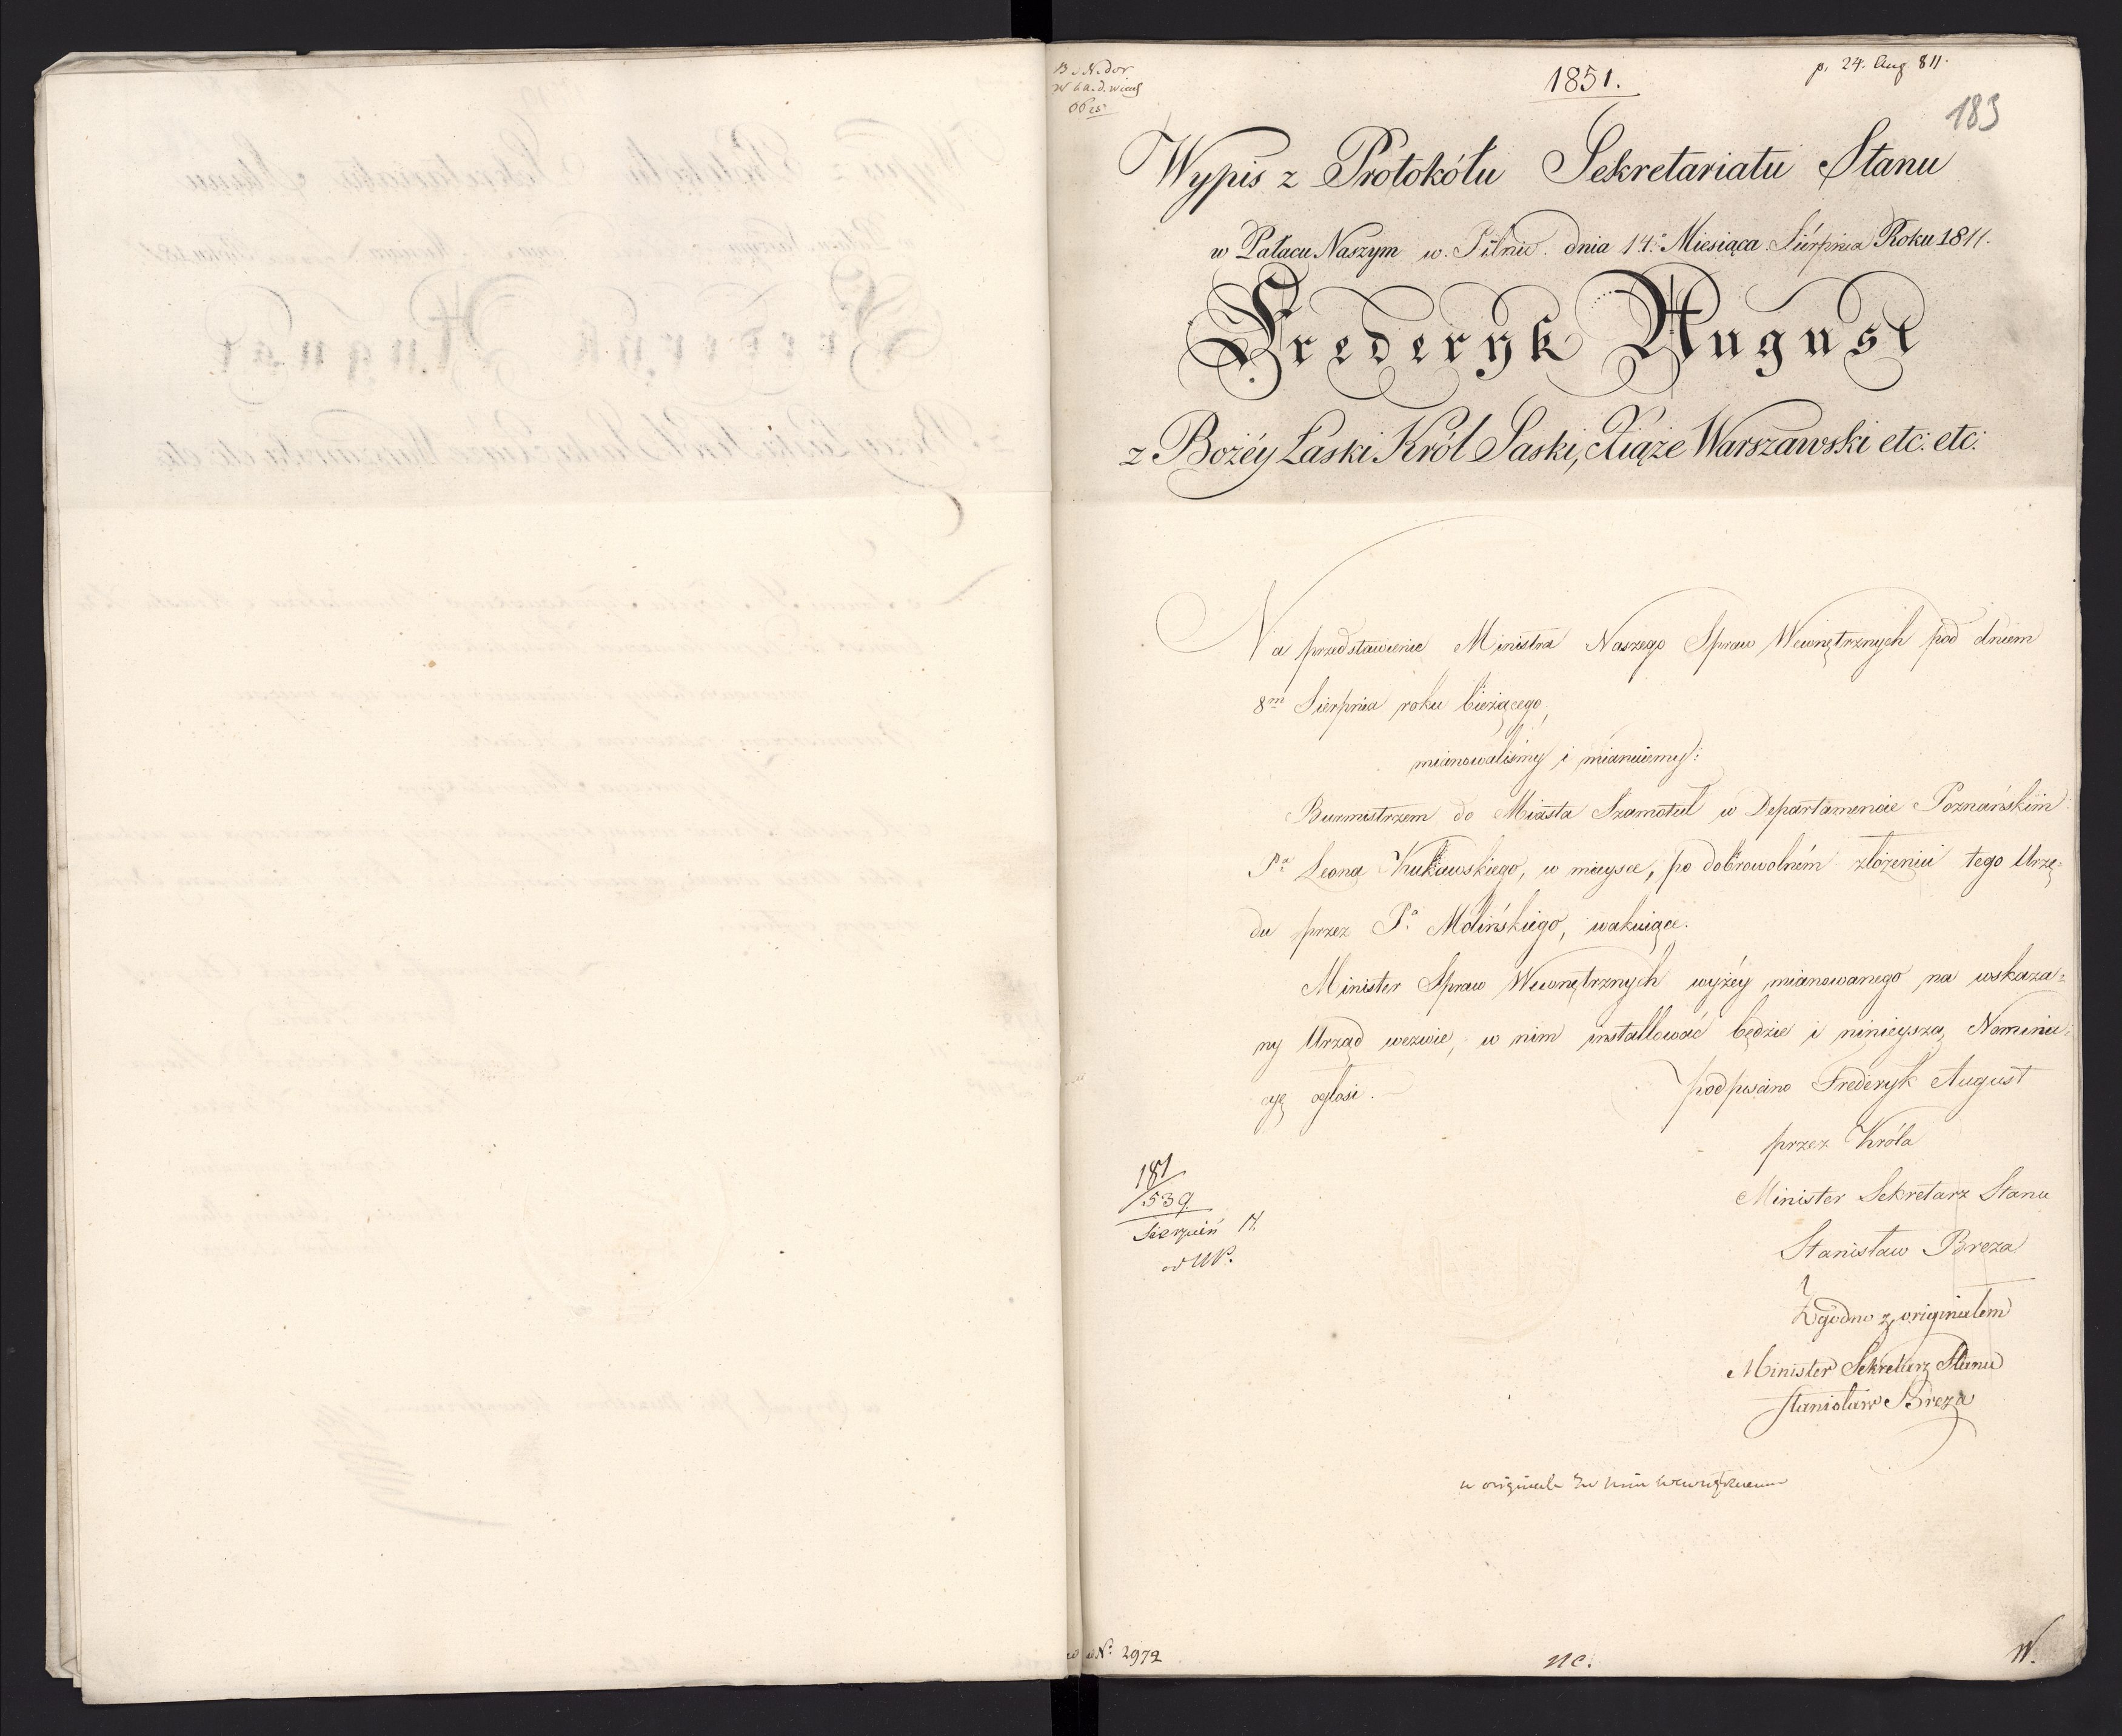 1851.
p. 24. Aug 811.
183
Wypis z Protokółu Sekretariatu Stanu
w Pałacu Naszym w. Pilnic. dnia 14. Miesiąca Sierpnia Roku 1811.
Frederyk August
z Bożéy Łaski Król Saski, Xiąże Warszawski etc: etc:
Na przedstawienie Ministra Naszego Spraw Wewnętrznych pod dniem
8m Sierpnia roku bieżącego,
mianowaliśmy i mianuiemy:
Burmistrzem do Miasta Szamotuł w Departamencie Poznańskim
Pa Leona Kukawskiego, w mieysce, po dobrowolném złożeniu tego Urzę=
du przez Pa Molińskiego, wakuiące.
Minister Spraw Wewnętrznych wyżéy mianowanego na wskaza=
ny Urząd wezwie, w nim installować będzie i ninieyszą Nomina=
cyę ogłosi.
podpisano Frederyk August
przez Króla
Minister Sekretarz Stanu
Stanisław Breza
Zgodno z originałem
Minister Sekretarz Stanu
Stanisław Breza
181
539
Sierpień 11.
w originale
No 2972
nc.
W.